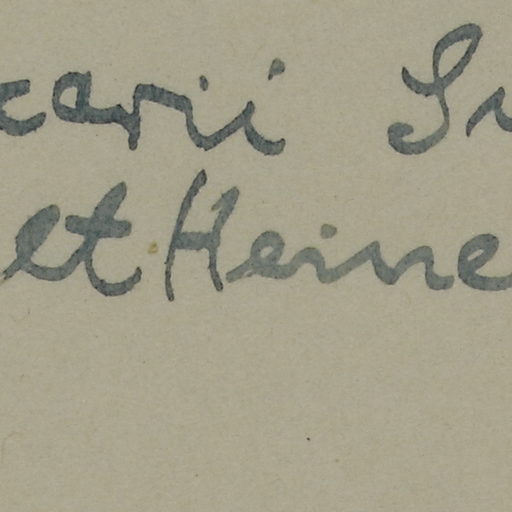 carii S
et Heine